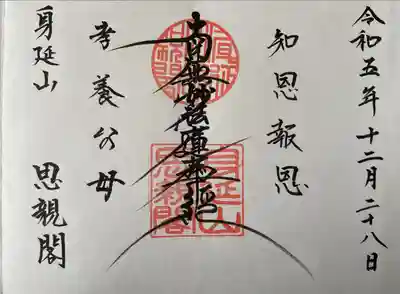 令和五年十二月二十八日
知恩報恩
南無妙法蓮華経
孝養父母
身延山 思親閣
身延山
思親閣